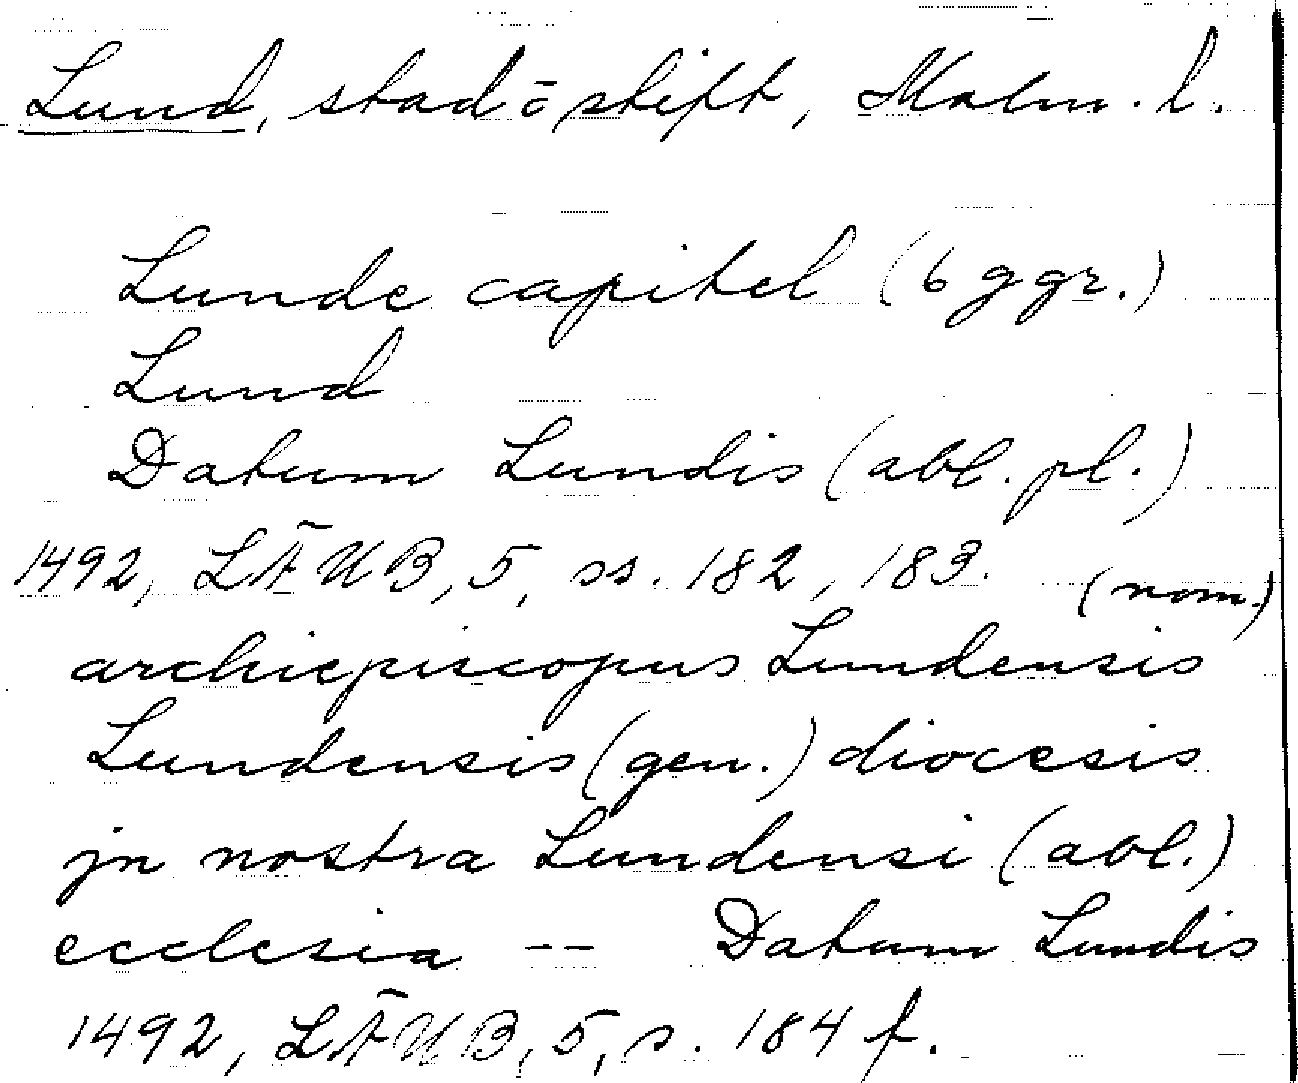 Lund, stad o stift, Malm. l.
Lunde capitel (6 ggr.)
Lund
Datum Lundis (abl. pl.)
1492, LÄUB, 5, ss. 182, 183.
(nom.)
archiepiscopus Lundensis
Lundensis (gen.) diocesis
jn nostra Lundensi (abl.)
ecclesia -- Datum Lundis
1492, LÄUB, 5, s. 184 f.